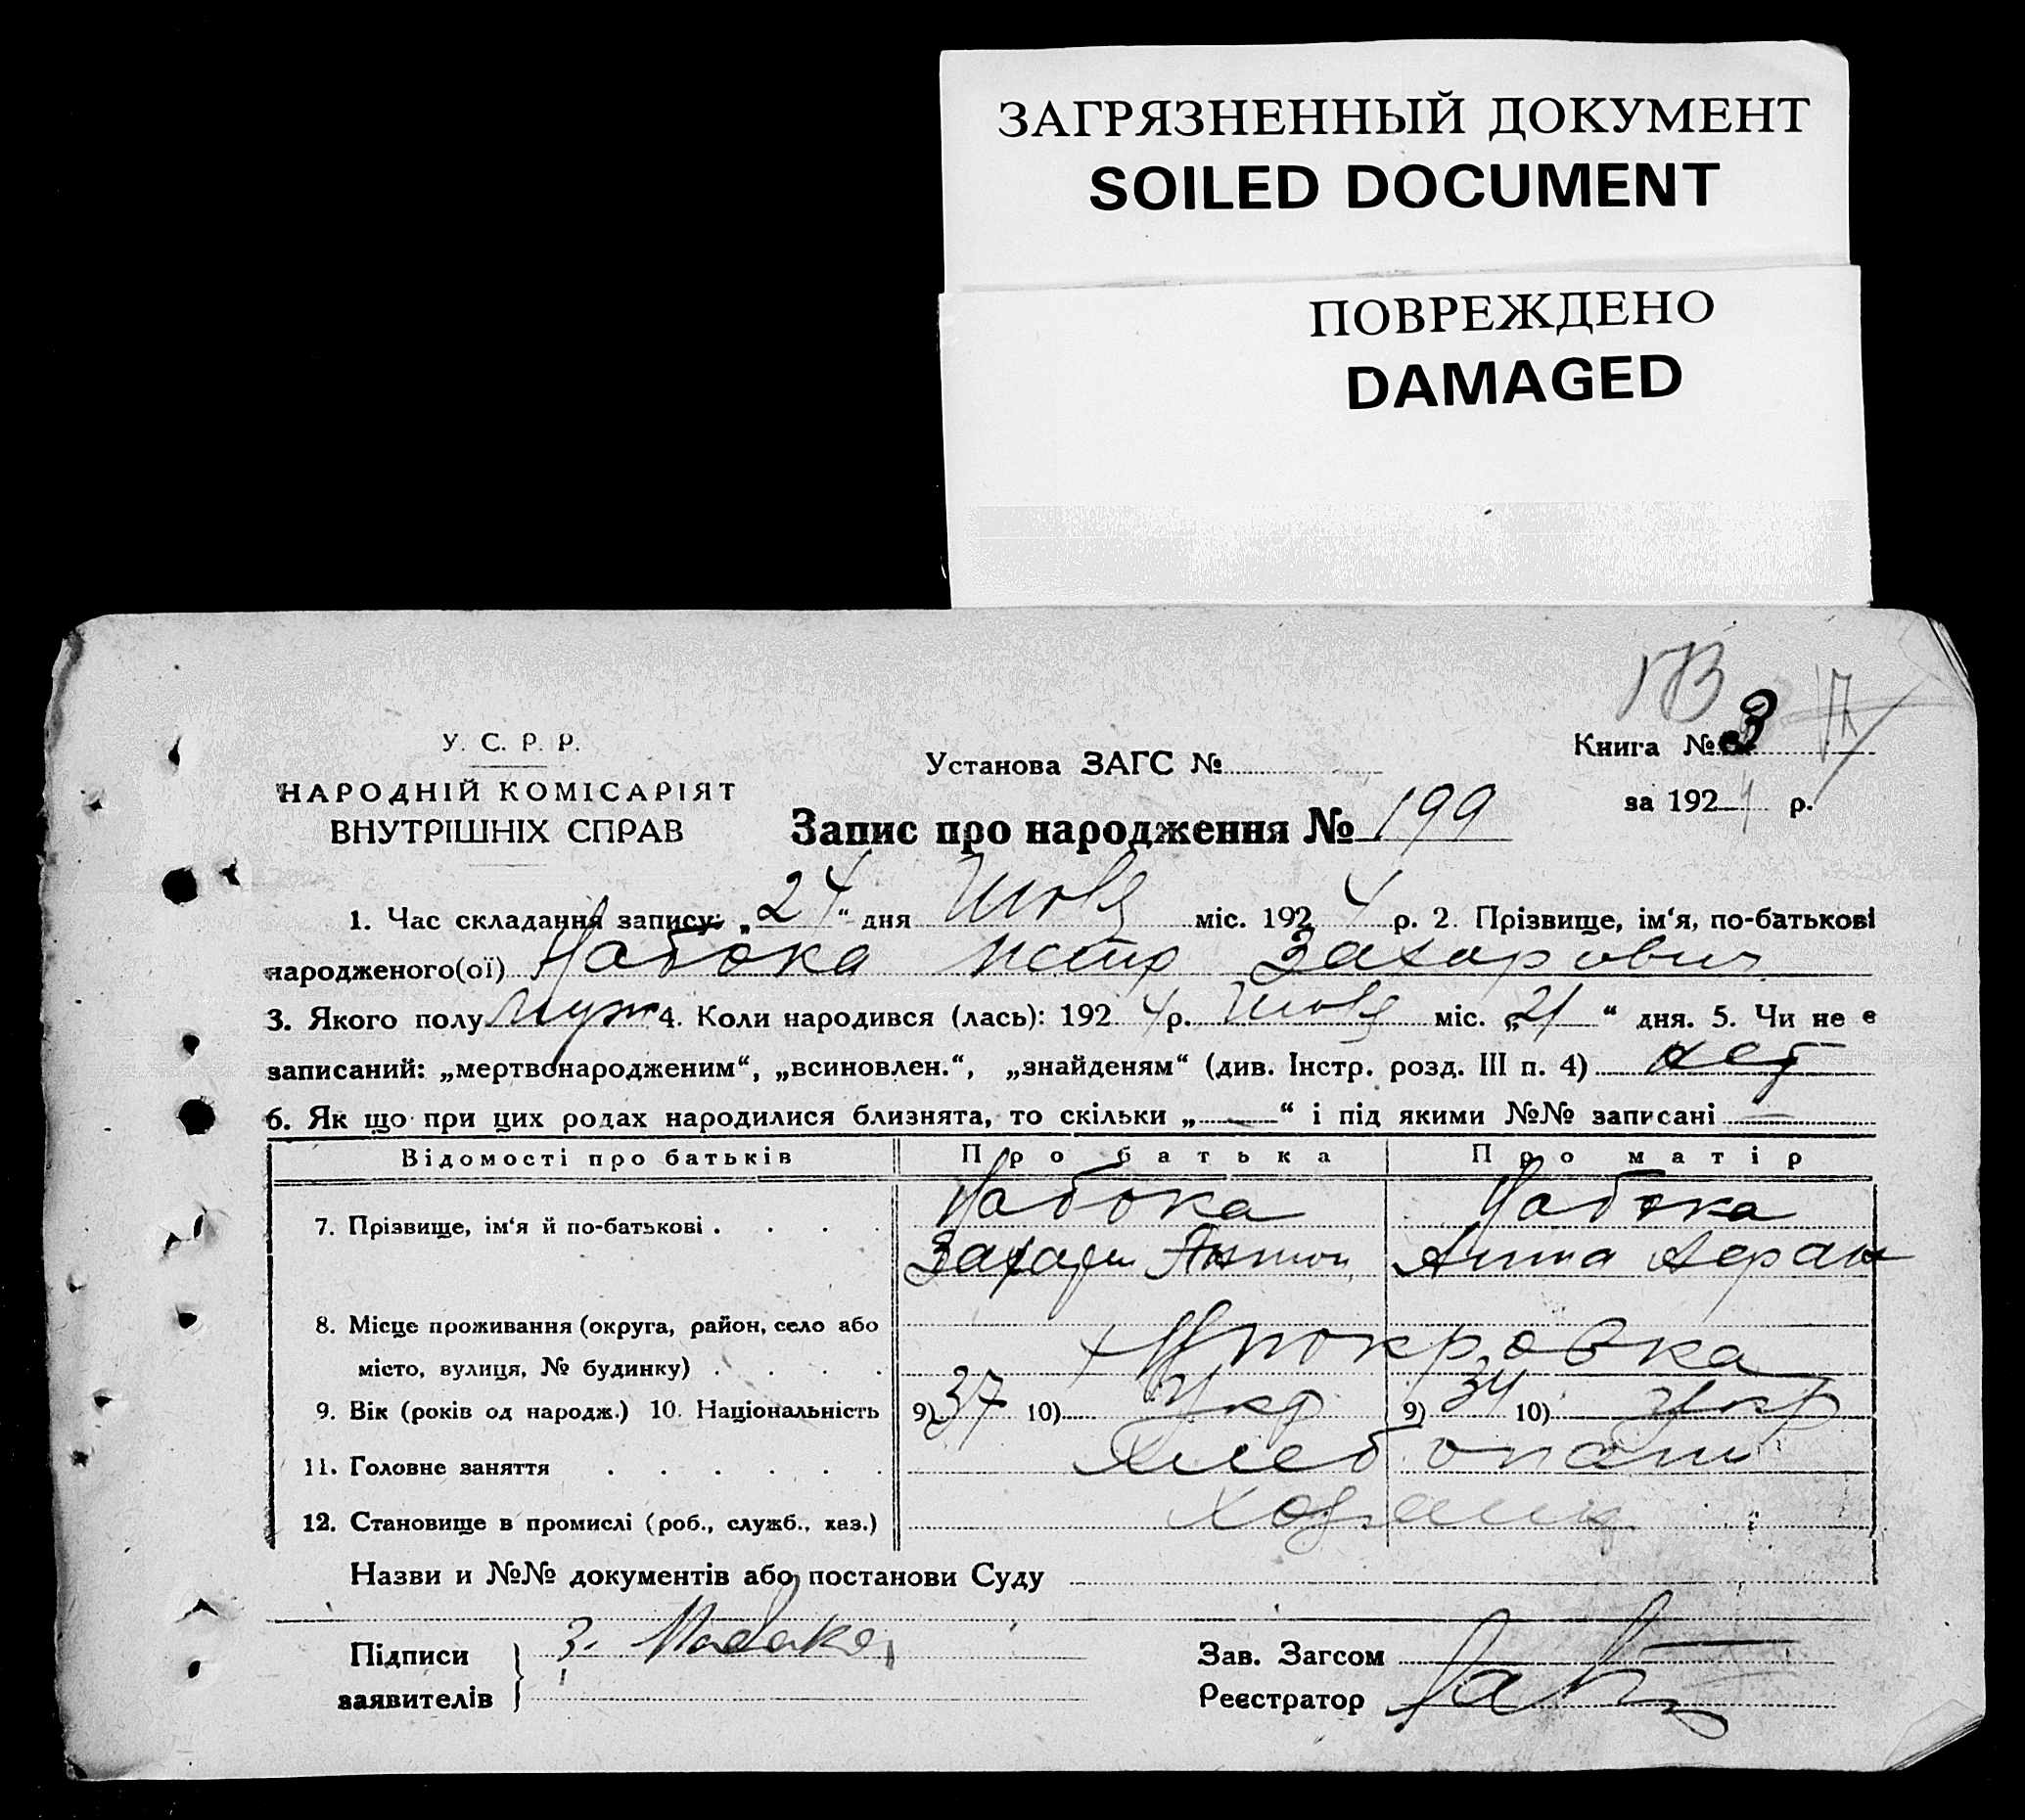 ЗАГРЯЗНЕННЫЙ ДОКУМЕНТ
SOILED DOCUMENT
ПОВРЕЖДЕНО
DAMAGED
У. С. Р. Р.
НАРОДНІЙ КОМІСАРІЯТ
ВНУТРІШНІХ СПРАВ
Установа ЗАГС №
Книга № 3
за 1924 р.
Запис про народження № 199
1. Час складання запису: „24“ дня Июля міс. 1924 р. 2. Прізвище, ім‘я, по-батькові
народженого(ої) Набока Петр Захарович
3. Якого полу муж 4. Коли народився (лась): 1924 р. Июля міс. „21“ дня. 5. Чи не є
записаний: „мертвонародженим“, „всиновлен.“, „знайденям“ (див. Інстр. розд. III п. 4) нет
6. Як що при цих родах народилися близнята, то скільки „—“ і під якими №№ записані —
Відомості про батьків Про батька Про матір
7. Прізвище, ім‘я й по-батькові . . . . Набока Набока
Захари Антон Анна
8. Місце проживання (округа, район, село або
місто, вулиця, № будинку) . . . . покровка
9. Вік (років од народж.) 10. Національність 9) 37 10) Укр 9) 34 10) Укр
11. Головне заняття . . . . . . Хлебопаш
12. Становище в промислі (роб., служб., хаз.)
Назви и №№ документів або постанови Суду
Підписи заявителів З. Набока
Зав. Загсом
Реєстратор